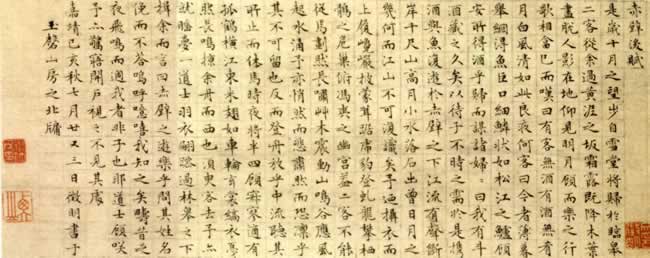 赤壁後賦
是歲十月之望步自雪堂將歸於臨皋
二客從余過黃泥之坂霜露既降木葉
盡脫人影在地仰見明月顧而樂之行
歌相答已而嘆曰有客無酒有酒無肴
月白風清如此良夜何客曰今者薄暮
舉網得魚巨口細鱗狀如松江之鱸顧
安所得酒乎歸而謀諸婦婦曰我有斗
酒藏之久矣以待子不時之需於是攜
酒與魚復遊於赤壁之下江流有聲斷
岸千尺山高月小水落石出曾日月之
幾何而江山不可復識矣予乃攝衣而
上履巉巖披蒙茸踞虎豹登虬龍攀栖
鶻之危巢俯馮夷之幽宮蓋二客不能
從焉劃然長嘯草木震動山鳴谷應風
起水涌予亦悄然而悲肅然而恐凜乎
其不可留也反而登舟放乎中流聽其
所止而休焉時夜將半四顧寂寥適有
孤鶴橫江東來翅如車輪玄裳縞衣戛
然長鳴掠余舟而西也須臾客去予亦
就睡夢一道士羽衣翩躚過林皋之下
揖余而言曰赤壁之遊樂乎問其姓名
俛而不答嗚呼噫嘻我知之矣疇昔之
夜飛鳴而過我者非子也耶道士顧笑
予亦驚寤開戶視之不見其處
嘉靖己亥秋七月廿又三日徵明書于
玉磬山房之北牖